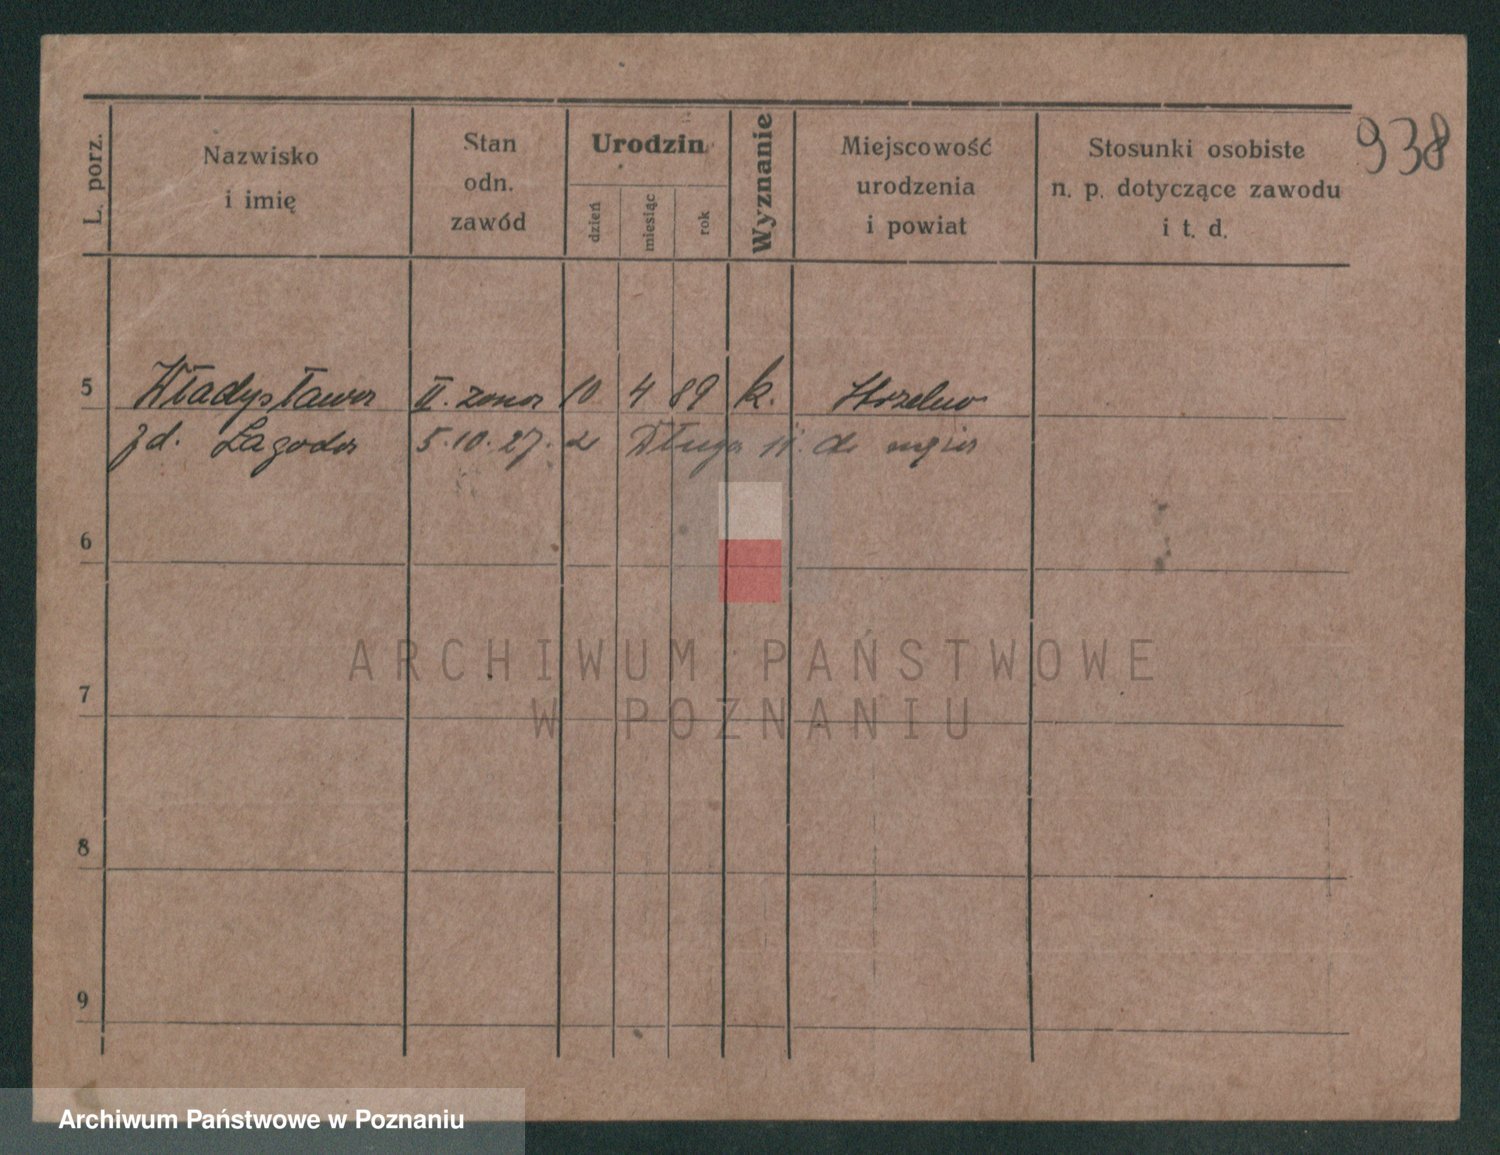 938
L. porz.
Nazwisko
i imię
Stan
odn.
zawód
Urodzin
dzień
miesiąc
rok
Wyznanie
Miejscowość
urodzenia
i powiat
Stosunki osobiste
n. p. dotyczące zawodu
i t. d.
5 Władysława II. żona 10 4 89 k. Strzelno
zd. Łagoda 5.10.27. z Długa 11. do męża
6
7
8
9
ARCHIWUM PAŃSTWOWE
W POZNANIU
Archiwum Państwowe w Poznaniu